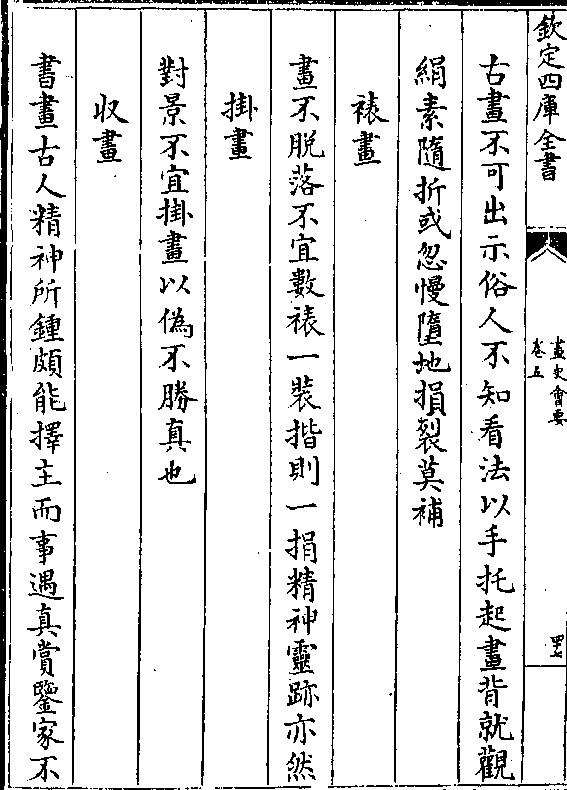 欽定四庫全書
畫史會要
卷五
四十七
古畫不可出示俗人不知看法以手托起畫背就觀
絹素隨折或忽慢墮地損裂莫補
裱畫
畫不脫落不宜數裱一裝揩則一損精神靈跡亦然
掛畫
對景不宜掛畫以偽不勝真也
収畫
書畫古人精神所鍾頗能擇主而事遇真賞鑒家不